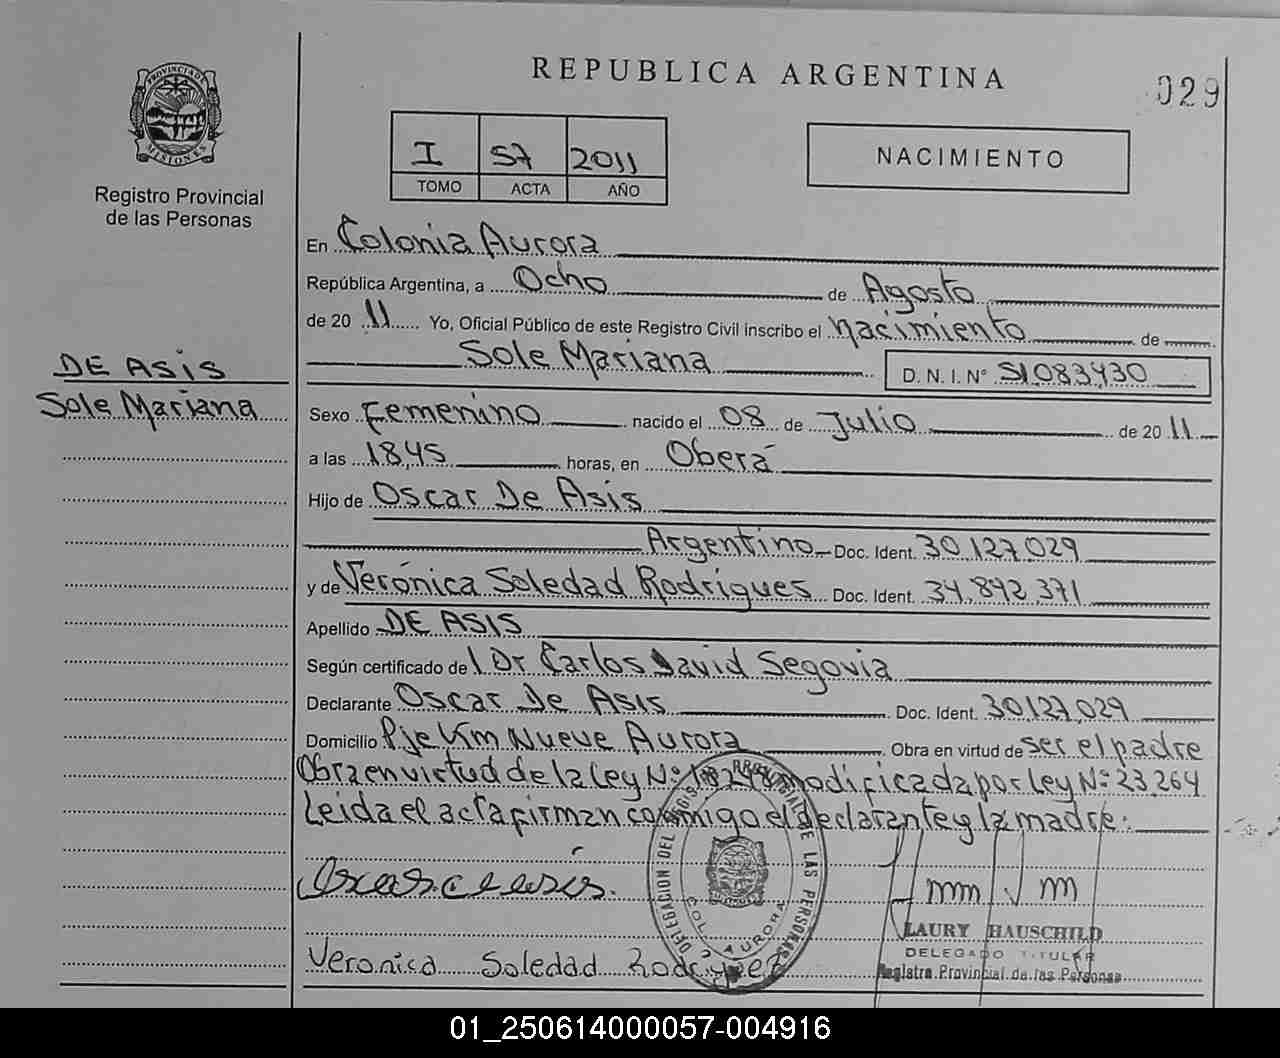 REPUBLICA ARGENTINA
029
PROVINCIA DE MISIONES
Registro Provincial
de las Personas
I 57 2011
TOMO ACTA AÑO
NACIMIENTO
En Colonia Aurora
República Argentina, a Ocho de Agosto
de 20 11 Yo, Oficial Público de este Registro Civil inscribo el nacimiento de
Sole Mariana D. N. I. N° 51.083.430
DE ASIS
Sole Mariana
Sexo Femenino nacido el 08 de Julio de 20 11
a las 18,45 horas, en Oberá
Hijo de Oscar De Asis
Argentino Doc. Ident. 30.127.029
y de Verónica Soledad Rodrigues Doc. Ident. 34.892.371
Apellido DE ASIS
Según certificado de l Dr Carlos David Segovia
Declarante Oscar De Asis Doc. Ident. 30.127.029
Domicilio Pje Km Nueve Aurora Obra en virtud de ser el padre
Obra en virtud de la Ley N° 18248 modificada por Ley N° 23.264
Leida el acta firman conmigo el declarante y la madre:
Oscar de asis.
DELEGACION DEL REGISTRO PROVINCIAL DE LAS PERSONAS
COL. AURORA
LAURY HAUSCHILD
DELEGADO TITULAR
Registro Provincial de las Personas
Veronica Soledad Rodriguez
01_250614000057-004916